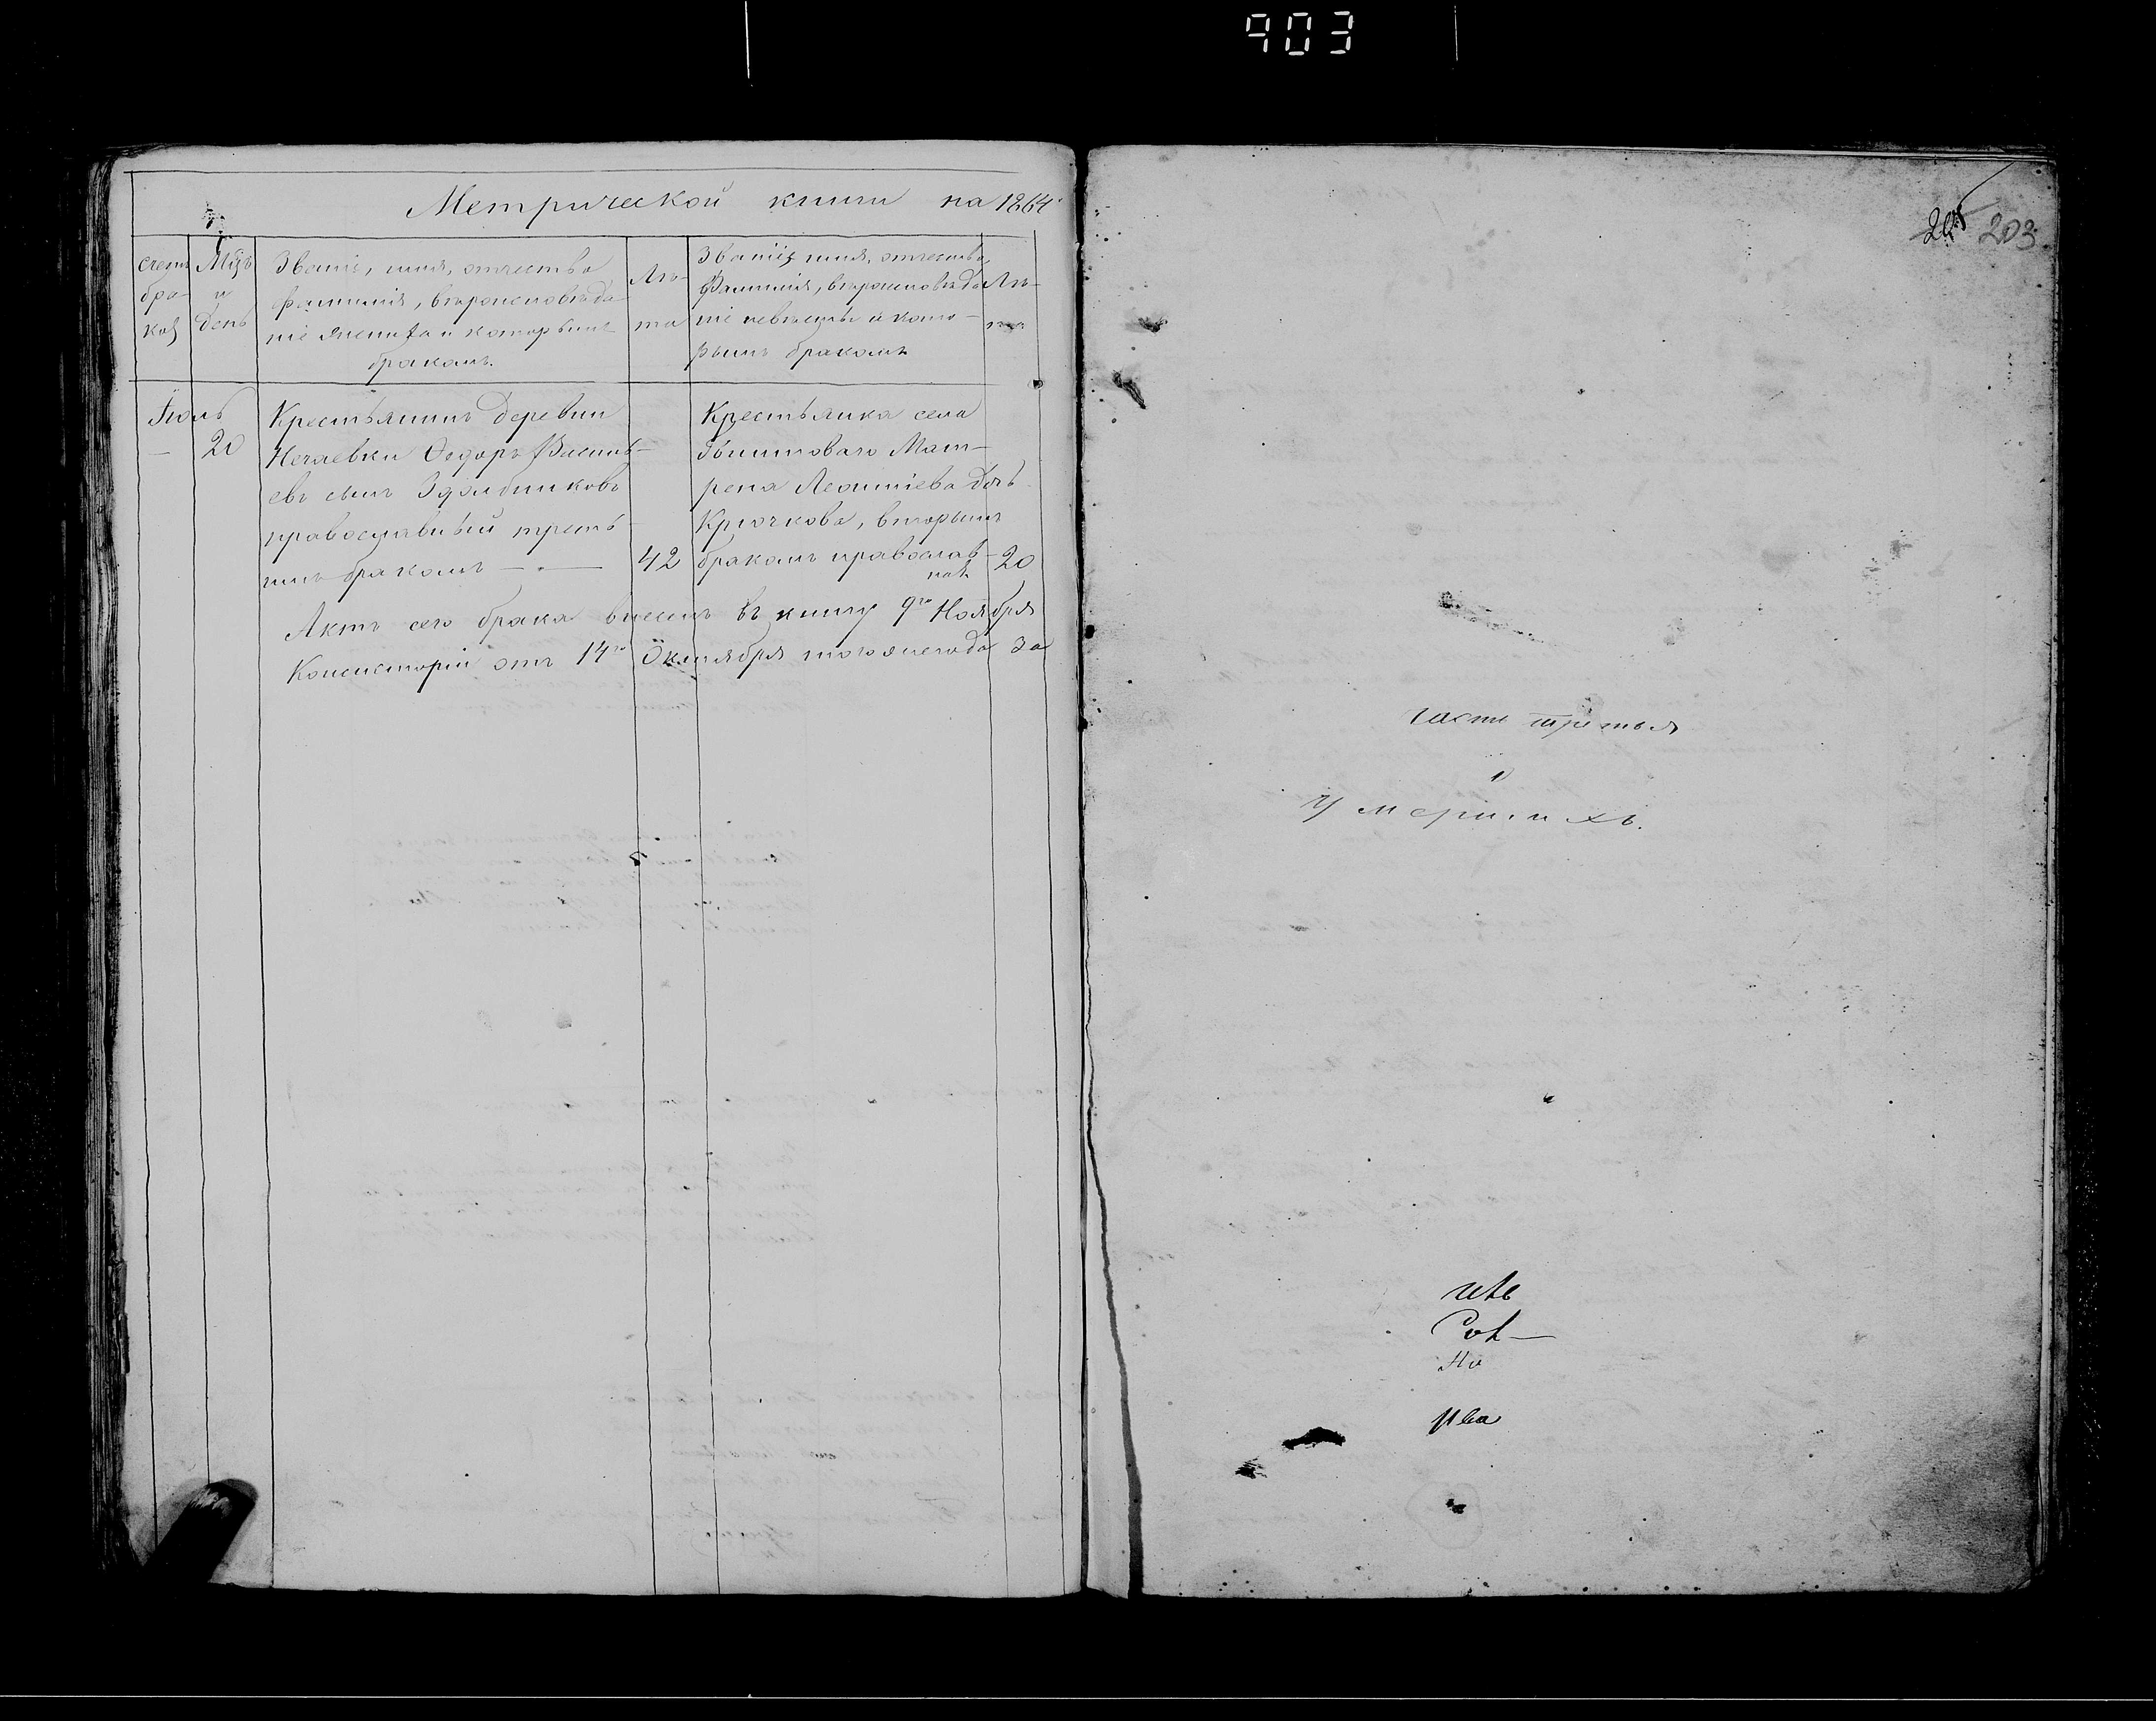 903
Метрической книги на 1864
счетъ
бра-
ковъ
Мѣсц
и
день
Званіе, имя, отчество
фамилія, вѣроисповѣда-
ніе жениха и которымъ
бракомъ.
Лѣ-
та
Званіе, имя, отчество,
фамилія, вѣроисповѣда-
ніе невѣсты и кото-
рымъ бракомъ
Лѣ-
та
Іюль
— 20
Крестьянинъ деревни
Нечаевки Ѳедоръ Василь-
евъ сынъ
православный треть-
имъ бракомъ —.—
42
Крестьянка села
Мат-
рена Леонтіева дочь
Крючкова, вторымъ
бракомъ православ-
ная
20
Актъ сего брака внесенъ въ книгу 9го Ноября
Консисторіи отъ 14го Октября тогоже года за
205 203
часть третья
о
умершихъ.
Но
рва